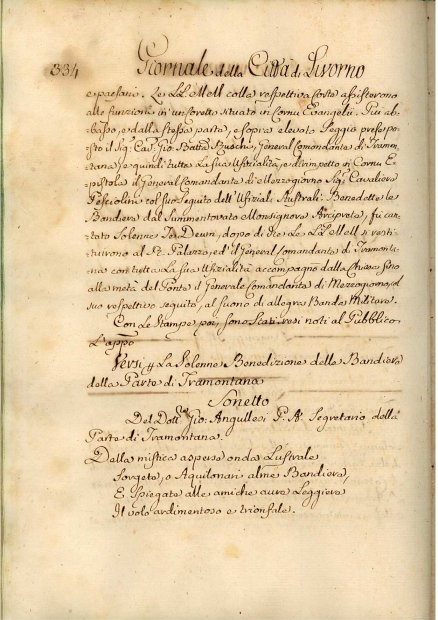 334 Giornale della Città di Livorno
e paesano. Le LL. MM colla respettiva Corte assisterono
alle funzioni in un Coretto situato in Cornu Evangelii. Più ab-
basso, e dalla stessa parte, e sopra elevato Seggio prese po-
sto il Sigr. Cav. Gio: Batta General Comandante di Tramon-
tana, e quindi tutta La sua Ufizialità, e dirimpetto in Cornu E-
pistola il General Comandante di Mezzogiorno Sigr. Cavaliere
col suo seguito dell' Ufizial: Australi. Benedette le
Bandiere dal Summentovato Monsignore Arciprete, fu can-
tato Solenne Te Deum, dopo di che Le LL. MM si resti-
tuirono al Rl. Palazzo, ed il General Comandante di Tramonta-
na con tutta La sua Ufizialità accompagnò dalla Chiesa fino
alla metà del Ponte il Generale Comandante di Mezzogiorno, e
suo respettivo seguito, al suono di allegra Banda Militare.
Con Le Stampe poi sono Stati resi noti al Pubblico
L'appo
Versi p La Solenne Benedizione delle Bandiere
della Parte di Tramontana
Sonetto
Del Dott. Gio: Angullesi P. A. Segretario della
Parte di Tramontana.
Della mistica aspersa onda Lustrale
Sorgete, o Aquilonari alme Bandiere,
E spiegate alle amiche aure Leggiere
Il volo ardimentoso e trionfale.